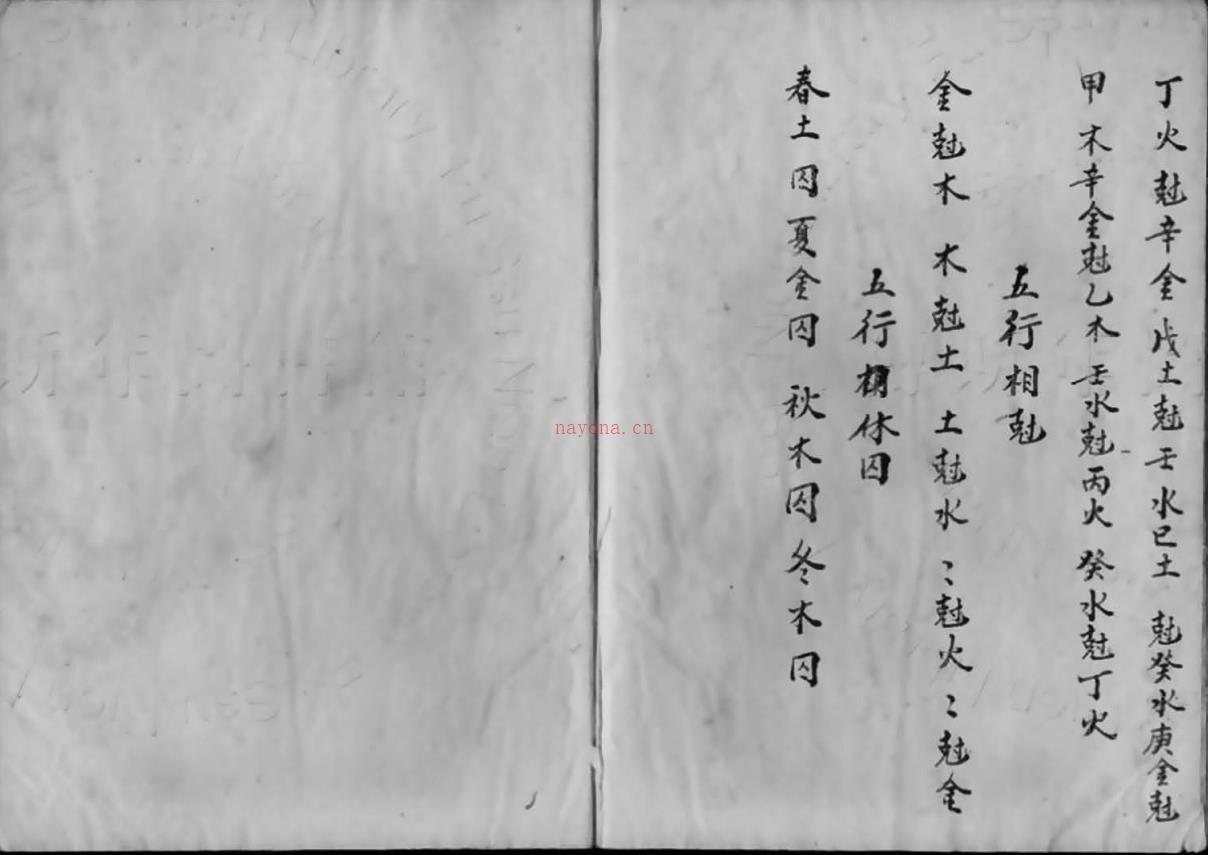 丁火尅辛金戊土尅壬水已土尅癸水庚金尅
甲木辛金尅乙木壬水尅丙火癸水尅丁火
五行相尅
金尅木 木尅土 土尅水 〻尅火〻尅金
五行相休囚
春土囚夏金囚 秋木囚冬木囚
nayona.cn